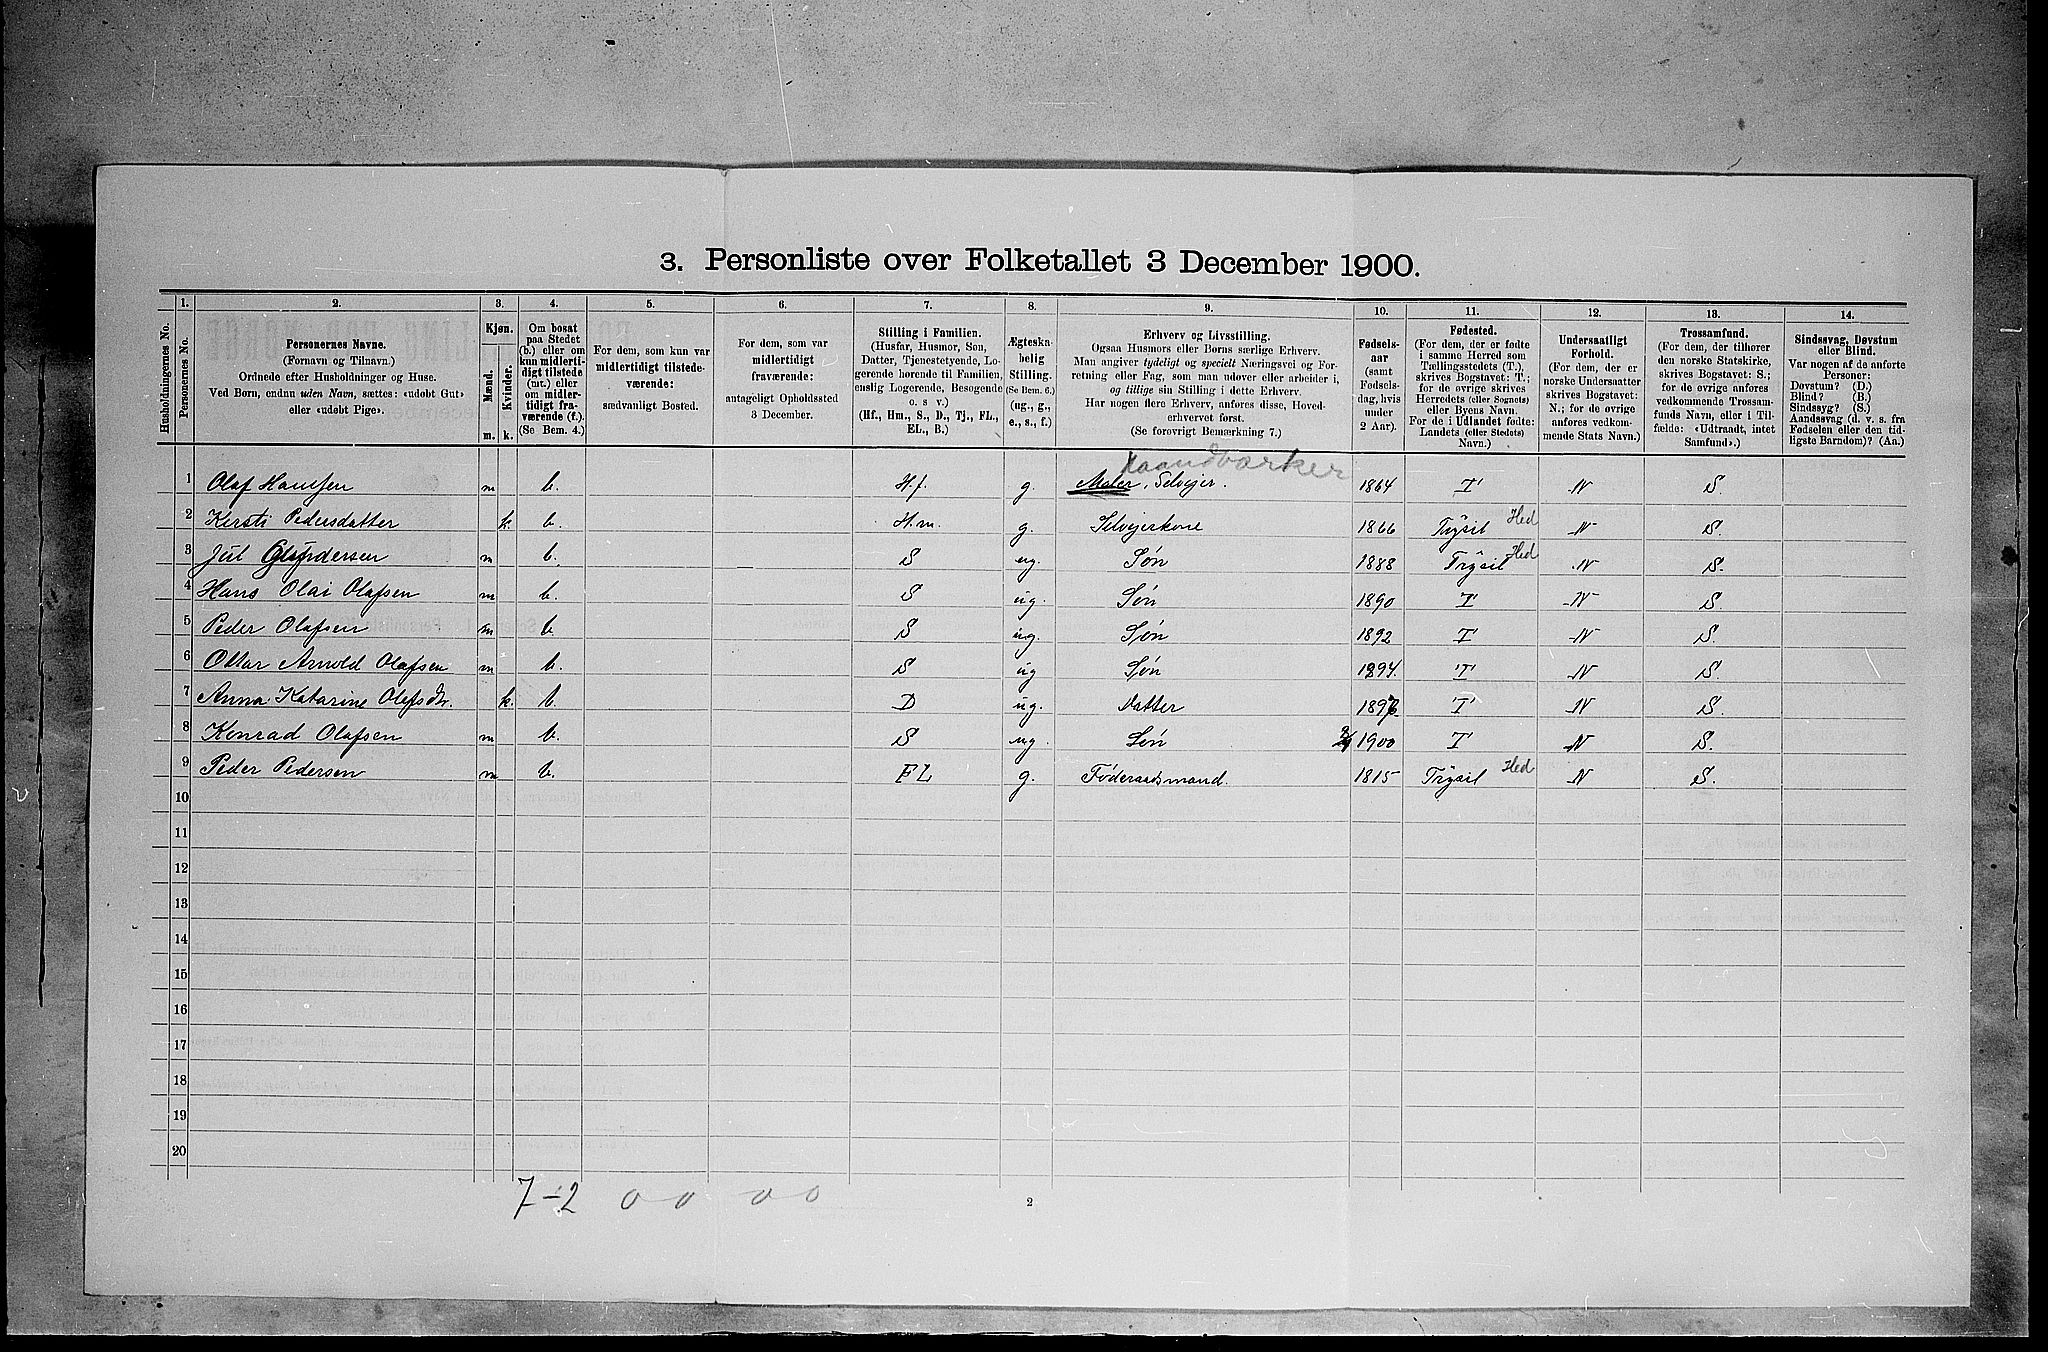 3. Personliste over Folketallet 3 December 1900.
1. 2. 3. 4. 5. 6. 7. 8. 9. 10. 11. 12. 13. 14.
Husholdningenes No.
Personernes No.
Personernes Navne.
(Fornavn og Tilnavn.)
Ordnede efter Husholdninger og Huse.
Ved Børn, endnu uden Navn, sættes: «udøbt Gut»
eller «udøbt Pige».
Kjøn.
Mænd.
Kvinder.
m. k.
Om bosat
paa Stedet
(b.) eller om
kun midlerti-
digt tilstede
(mt.) eller
om midler-
tidigt fra-
værende (f.).
(Se Bem. 4.)
For dem, som kun var
midlertidigt tilstede-
værende:
sædvanligt Bosted.
For dem, som var
midlertidigt
fraværende:
antageligt Opholdssted
3 December.
Stilling i Familien.
(Husfar, Husmor, Søn,
Datter, Tjenestetyende, Lo-
gerende hørende til Familien,
enslig Logerende, Besøgende
o. s. v.)
(Hf., Hm., S., D., Tj., FL.,
EL., B.)
Ægteska-
belig
Stilling.
(Se Bem. 6.)
(ug., g.,
e., s., f.)
Erhverv og Livsstilling.
Ogsaa Husmors eller Børns særlige Erhverv.
Man angiver tydeligt og specielt Næringsvei og For-
retning eller Fag, som man udøver eller arbeider i,
og tillige sin Stilling i dette Erhverv.
Har nogen flere Erhverv, anføres disse, Hoved-
erhvervet først.
(Se forøvrigt Bemærkning 7.)
Fødsels-
aar
(samt
Fødsels-
dag, hvis
under
2 Aar).
Fødested.
(For dem, der er fødte
i samme Herred som
Tællingsstedets (T.),
skrives Bogstavet: T.;
for de øvrige skrives
Herredets (eller Sognets)
eller Byens Navn.
For de i Udlandet fødte:
Landets (eller Stedets)
Navn.)
Undersaatligt
Forhold.
(For dem, der er
norske Undersaatter
skrives Bogstavet:
N.; for de øvrige
anføres vedkom-
mende Stats Navn.)
Trossamfund.
(For dem, der tilhører
den norske Statskirke,
skrives Bogstavet: S.;
for de øvrige anføres
vedkommende Trossam-
funds Navn, eller i Til-
fælde: «Udtraadt, intet
Samfund».)
Sindssvag, Døvstum
eller Blind.
Var nogen af de anførte
Personer:
Døvstum? (D.)
Blind? (B.)
Sindssyg? (S.)
Aandssvag (d. v. s. fra
Fødselen eller den tid-
ligste Barndom)? (Aa.)
Haandværker
1 Olaf Hansen m b. Hf. g. Maler, Selvejer. 1864 T N S.
2 Kersti Pedersdatter k b. H.m. g. Selvejerkone 1866 Trysil Hed N S.
3 Jul m b. S ug. Søn 1888 Trysil Hed N S.
4 Hans Olai Olafsen m b. S ug. Søn 1890 T N S.
5 Peder Olafsen m b. S ug. Søn 1892 T N S.
6 Ottar Arnold Olafsen m b. S ug Søn 1894. T N S.
7 Anna Katarine Olafsdtr. k. b. D ug. Datter T N S.
8 Konrad Olafsen m b. S ug. Søn 1900 T N S.
9 Peder Pedersen m b. FL g. Föderaadsmand. 1815 Trysil Hed N S.
10
11
12
13
14
15
16
17
18
19
20
7-2 0 0 0 0
2